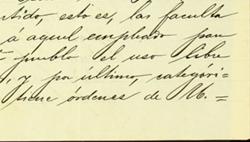 tido, esto es, las faculta
á aquel empleado para
pueblo el uso libre
y por último, categóri-
tiene órdenes de M.=